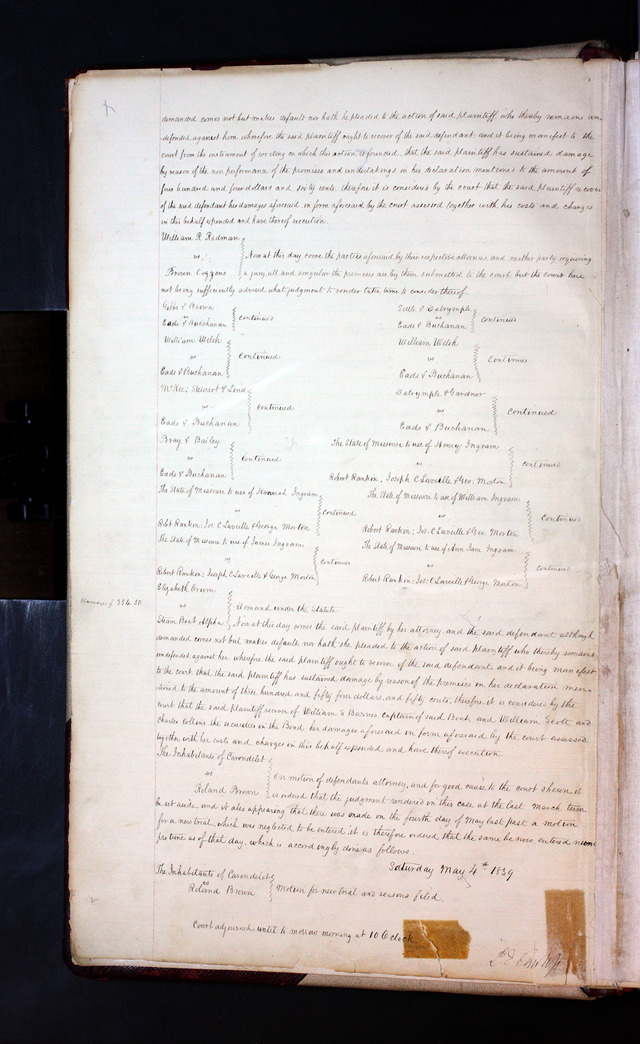 demanded comes not but makes default nor hath he pleaded to the action of said plaintiff who thereby remains un-
defended against him wherefore the said plaintiff ought to recover of the said defendant and it being manifest to the
court from the instrument of writing on which this action is founded, that the said plaintiff has sustained damage
by reason of the non performance of the promises and undertakings in his declaration mentioned to the amount of
four hundred and four dollars and sixty cents, therefore it is considered by the court that the said plaintiff recover
of the said defendant his damages aforesaid in form aforesaid by the court assessed together with his costs and charges
in this behalf expended and have thereof execution.
William R Redman
vs
Brown Cozzens
Now at this day come the parties aforesaid by their respective attornies, and neither party requiring
a jury, all and singular the premises are by them submitted to the court, but the court here
not being sufficiently advised what judgment to render takes time to consider thereof
Gibbs & Brown
vs
Eads & Buchanan
continued
Tuttle & Dalrymple
vs
Eads & Buchanan
continued
William Welsh
vs
Eads & Buchanan
continued
William Welsh
vs
Eads & Buchanan
continued
McKee, Stewart & Lond
vs
Eads & Buchanan
continued
Dalrymple & Gardner
vs
Eads & Buchanan
continued
Bray & Bailey
vs
Eads & Buchanan
continued
The State of Missouri to use of Henry Ingram
vs
Robert Rankin, Joseph C Laveille & Geo. Morton
continued
The State of Missouri to use of Hannah Ingram
vs
Robt Rankin; Jos. C Laveille & George Morton
continued
The State of Missouri to use of William Ingram
vs
Robert Rankin; Jos: C Laveille & Geo. Morton
continued
The State of Missouri to use of James Ingram
vs
Robert Rankin; Joseph C Laveille & George Morton
continued
The State of Missouri to use of Ann Jane Ingram
vs
Robt Rankin; Jos: C Laveille & George Morton
continued
Damages $354.50
Elizabeth
vs
Steam Boat Alpha
demand under the Statute
Now at this day comes the said plaintiff by her attorney, and the said defendant although
demanded comes not but makes default nor hath she pleaded to the action of said plaintiff who thereby remains
undefended against her, wherefore the said plaintiff ought to recover of the said defendant, and it being manifest
to the court that the said plaintiff has sustained damage by reason of the premises in her declaration men-
tioned to the amount of three hundred and fifty four dollars, and fifty cents; therefore it is considered by the
court that the said plaintiff recover of William S Barnes captain of said Boat, and William Scott and
Charles Collins the securities in the Bond her damages aforesaid in form aforesaid by the court assessed
together with her costs and charges in this behalf expended and have thereof execution.
The Inhabitants of Carondelet
vs
Roland Brown
On motion of defendants attorney, and for good cause to the court shewn it
is ordered that the judgment rendered in this case at the last March term
be set aside, and it also appearing that there was made on the fourth day of May last past a motion
for a new trial, which was neglected to be entered, it is therefore ordered that the same be now entered nunc
pro tunc as of that day, which is accordingly done as follows
Saturday May 4th 1839
The Inhabitants of Carondelet
vs
Roland Brown
Motion for new trial and reasons filed.
Court adjourned until to morrow morning at 10 O'clock